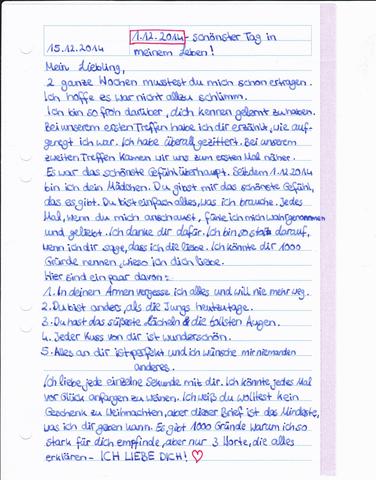 1.12.2014 - schönster Tag in
15.12.2014 meinem Leben!
Mein Liebling,
2 ganze Wochen musstest du mich schon ertragen.
Ich hoffe es war nicht allzu schlimm.
Ich bin so froh darüber, dich kennen gelernt zu haben.
Bei unserem ersten Treffen habe ich dir erzählt, wie auf-
geregt ich war. Ich habe überall gezittert. Bei unserem
zweiten Treffen kamen wir uns zum ersten Mal näher.
Es war das schönste Gefühl überhaupt. Seit dem 1.12.2014
bin ich dein Mädchen. Du gibst mir das schönste Gefühl,
das es gibt. Du bist einfach alles, was ich brauche. Jedes
Mal, wenn du mich anschaust, fühle ich mich wahrgenommen
und geliebt. Ich danke dir dafür. Ich bin so stolz darauf,
wenn ich dir sage, dass ich die liebe. Ich könnte dir 1000
Gründe nennen, wieso ich dich liebe.
Hier sind ein paar davon:
1. In deinen Armen vergesse ich alles und will nie mehr weg.
2. Du bist anders, als die Jungs heutzutage.
3. Du hast das süßeste Lächeln & die tollsten Augen.
4. Jeder Kuss von dir ist wunderschön.
5. Alles an dir ist perfekt und ich wünsche mir niemanden
anderes.
Ich liebe jede einzelne Sekunde mit dir. Ich könnte jedes Mal
vor Glück anfangen zu weinen. Ich weiß du wolltest kein
Geschenk zu Weihnachten, aber dieser Brief ist das Mindeste,
was ich dir geben kann. Es gibt 1000 Gründe warum ich so
stark für dich empfinde, aber nur 3 Worte, die alles
erklären - ICH LIEBE DICH! ♡